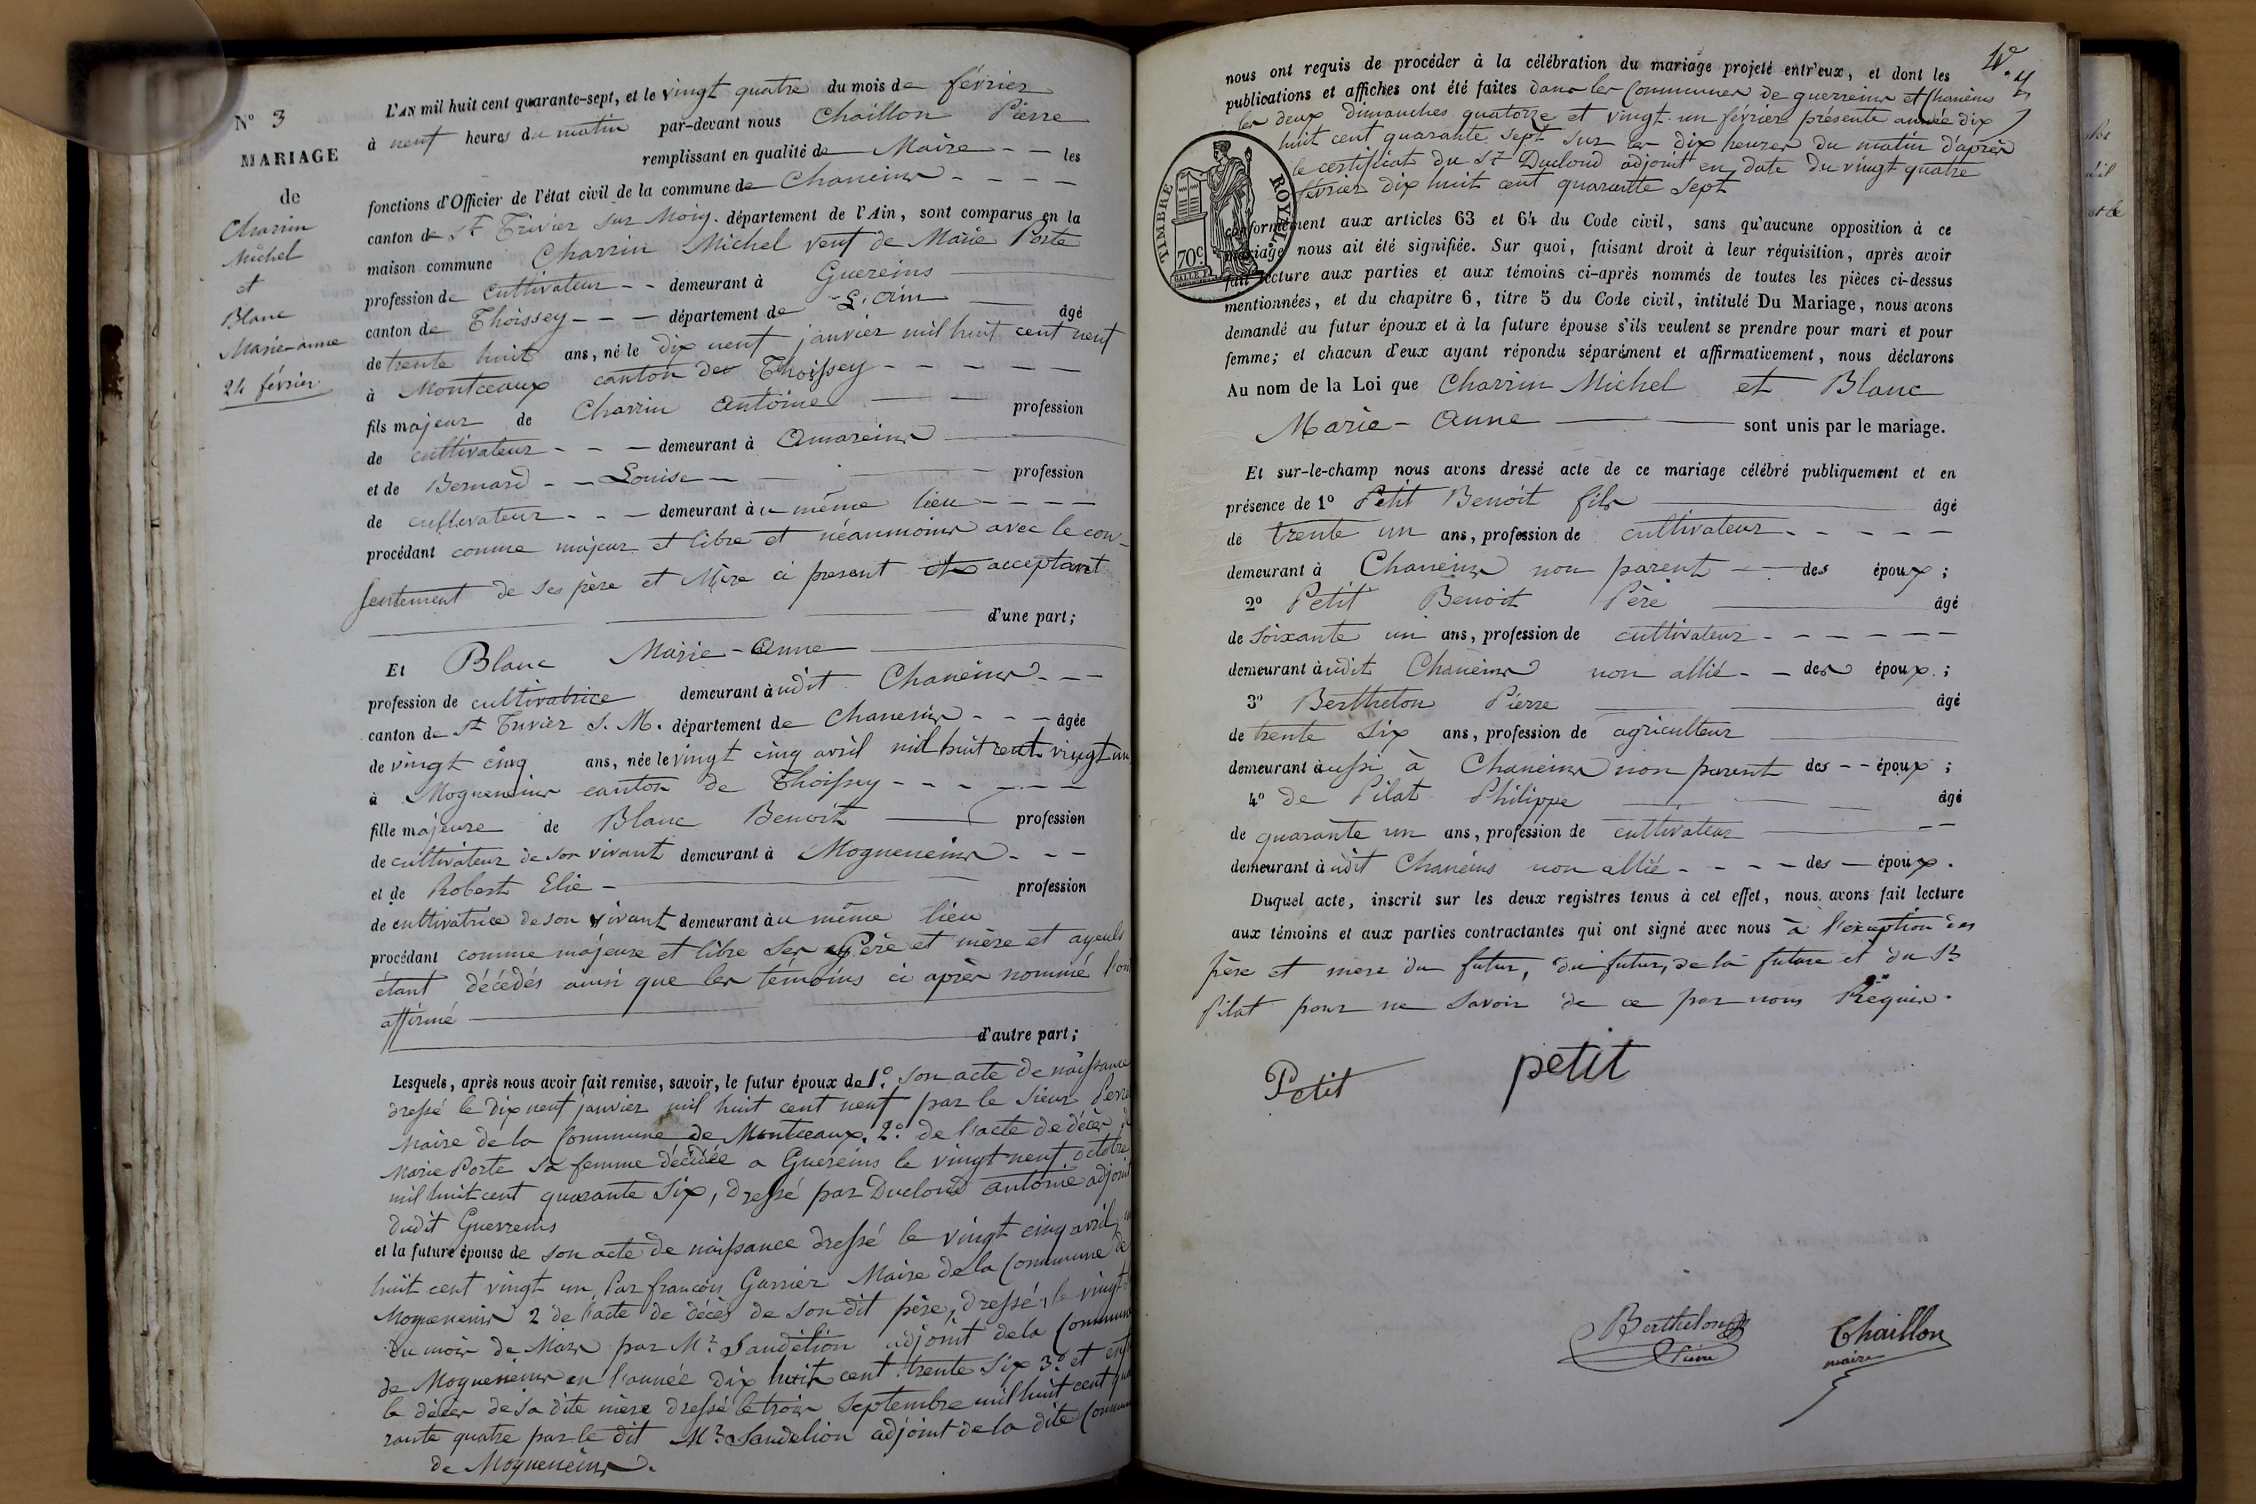 N° 3
MARIAGE
de
Charrin
Michel
et
Blanc
Marie-anne
24 février
L'AN mil huit cent quarante-sept, et le vingt quatre du mois de février
à neuf heures du matin par-devant nous Chaillon Pierre
remplissant en qualité de Maire - - les
fonctions d'Officier de l'état civil de la commune de Chaneins - - - -
canton de St Trivier sur Moig. département de l'Ain, sont comparus en la
maison commune Charrin Michel veuf de Marie Porte
profession de cultivateur - - demeurant à Guereins
canton de Thoissey - - - département de L'ain âgé
de trente huit ans, né le dix neuf janvier mil huit cent neuf
à Montceaux canton de Thoissey - - - - -
fils majeur de Charrin Antoine profession
de cultivateur - - - demeurant à Amareins
et de Bernard - - Louise - - profession
de cultivateur - - - demeurant au même lieu - - - -
procédant comme majeur et libre et néanmoins avec le con-
sentement de ses père et Mère ci present et acceptant
d'une part;
Et Blanc Marie-Anne
profession de cultivatrice demeurant audit Chaneins - - -
canton de St Trivier S. M. département de Chaneins - - - âgée
de vingt cinq ans, née le vingt cinq avril mil huit cent vingt un
à Mogneneins canton de Thoissey - - - - - -
fille majeure de Blanc Benoit profession
de cultivateur de son vivant demeurant à Mogneneins - - -
et de Robert Elie - profession
de cultivatrice de son vivant demeurant au même lieu
procédant comme majeure et libre ses Père et mère et ayeuls
étant décédés ainsi que les témoins ci après nommé l'ont
affirmé
d'autre part;
Lesquels, après nous avoir fait remise, savoir, le futur époux de 1° son acte de naissance
dressé le dix neuf janvier mil huit cent neuf par le Sieur
Maire de la Commune de Montceaux. 2° de l'acte de décès
Marie Porte sa femme décédée a Guereins le vingt neuf octobre
mil huit cent quarante Six, dressé par Ducloud antoine adjoint
dudit Guerreins
et la future épouse de son acte de naissance dressé le vingt cinq avril
huit cent vingt un, Par françois Garrier Maire de la Commune de
Mogneneins 2 de l'acte de décès de son dit père, dressé, le vingt
du mois de Mars par Mr Sandelion adjoint de la Commune
de Mogneneins en l'année dix huit cent trente Six 3° et
le décès de sa dite mère dressé le trois Septembre mil huit cent
rante quatre par le dit Mr Sandelion adjoint de la dite Commune
de Mogneneins.
nous ont requis de procéder à la célébration du mariage projeté entr'eux, et dont les
publications et affiches ont été faites dans les Communes de guerreins et Chaneins
les deux dimanches quatorze et vingt-un février présente année dix
huit cent quarante sept sur les dix heures du matin d'après
le certificat du Sr Ducloud adjoint en date du vingt quatre
février dix huit cent quarante sept
TIMBRE ROYAL
70c
conformément aux articles 63 et 64 du Code civil, sans qu'aucune opposition à ce
mariage nous ait été signifiée. Sur quoi, faisant droit à leur réquisition, après avoir
fait lecture aux parties et aux témoins ci-après nommés de toutes les pièces ci-dessus
mentionnées, et du chapitre 6, titre 5 du Code civil, intitulé Du Mariage, nous avons
demandé au futur époux et à la future épouse s'ils veulent se prendre pour mari et pour
femme; et chacun d'eux ayant répondu séparément et affirmativement, nous déclarons
Au nom de la Loi que Charrin Michel et Blanc
Marie-Anne sont unis par le mariage.
Et sur-le-champ nous avons dressé acte de ce mariage célébré publiquement et en
présence de 1° Petit Benoit fils âgé
de trente un ans, profession de cultivateur - - - - -
demeurant à Chaneins non parent - - des époux;
2° Petit Benoit Père âgé
de Soixante un ans, profession de cultivateur - - - - - -
demeurant audit Chaneins non allié - - des époux;
3° Berthelon Pierre âgé
de trente Six ans, profession de agriculteur
demeurant aussi à Chaneins non parent des - - époux;
4° de Pilat Philippe âgé
de quarante un ans, profession de cultivateur - -
demeurant audit Chaneins non allié - - - - des - époux.
Duquel acte, inscrit sur les deux registres tenus à cet effet, nous avons fait lecture
aux témoins et aux parties contractantes qui ont signé avec nous à l'exception des
père et mère du futur, du futur, de la future et du Sr
Pilat pour ne savoir de ce par nous Requis.
Petit petit
Berthelon
Pierre
Chaillon
maire